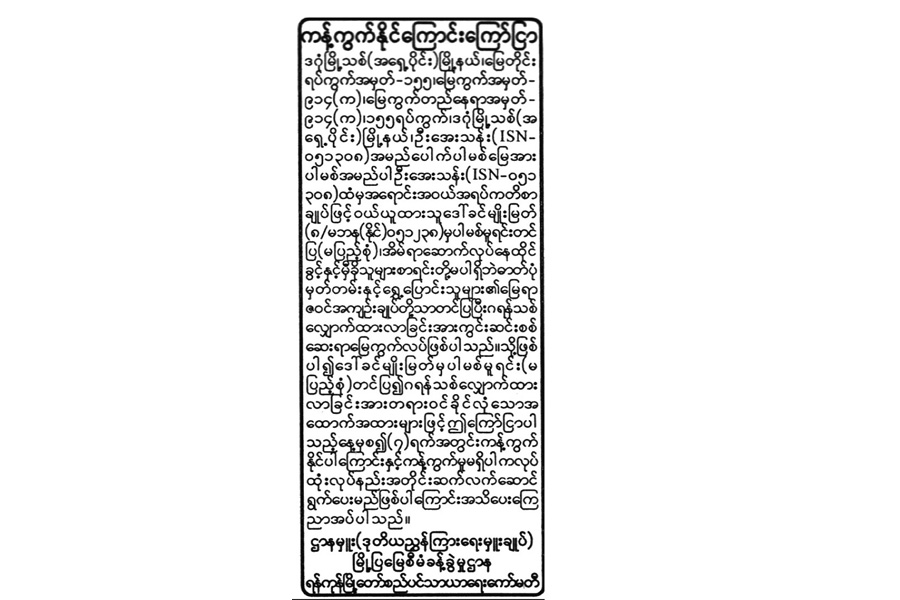 ကန့်ကွက်နိုင်ကြောင်းကြော်ငြာ
ဒဂုံမြို့သစ်(အရှေ့ပိုင်း)မြို့နယ်၊မြေတိုင်း
ရပ်ကွက်အမှတ်-၁၅၅၊မြေကွက်အမှတ်-
၉၁၄(က)၊မြေကွက်တည်နေရာအမှတ်-
၉၁၄(က)၊၁၅၅ရပ်ကွက်၊ဒဂုံမြို့သစ်(အ
ရှေ့ပိုင်း)မြို့နယ်၊ဦးအေးသန်း(ISN-
၀၅၁၃၀၈)အမည်ပေါက်ပါမစ်မြေအား
ပါမစ်အမည်ပါဦးအေးသန်း(ISN-၀၅၁
၃၀၈)ထံမှအရောင်းအဝယ်အရပ်ကတိစာ
ချုပ်ဖြင့်ဝယ်ယူထားသူဒေါ်ခင်မျိုးမြတ်
(၈/မဘန(နိုင်)၀၅၁၂၃၈)မှပါမစ်မူရင်းတင်
ပြ(မပြည့်စုံ)၊အိမ်ရာဆောက်လုပ်နေထိုင်
ခွင့်နှင့်မှီခိုသူများစာရင်းတို့မပါရှိဘဲဓာတ်ပုံ
မှတ်တမ်းနှင့်ရွှေ့ပြောင်းသူများ၏မြေရာ
ဇဝင်အကျဉ်းချုပ်တို့သာတင်ပြပြီးဂရန်သစ်
လျှောက်ထားလာခြင်းအားကွင်းဆင်းစစ်
ဆေးရာမြေကွက်လပ်ဖြစ်ပါသည်။သို့ဖြစ်
ပါ၍ဒေါ်ခင်မျိုးမြတ်မှပါမစ်မူရင်း(မ
ပြည့်စုံ)တင်ပြ၍ဂရန်သစ်လျှောက်ထား
လာခြင်းအားတရားဝင်ခိုင်လုံသောအ
ထောက်အထားများဖြင့်ဤကြော်ငြာပါ
သည့်နေ့မှစ၍(၇)ရက်အတွင်းကန့်ကွက်
နိုင်ပါကြောင်းနှင့်ကန့်ကွက်မှုမရှိပါကလုပ်
ထုံးလုပ်နည်းအတိုင်းဆက်လက်ဆောင်
ရွက်ပေးမည်ဖြစ်ပါကြောင်းအသိပေးကြေ
ညာအပ်ပါသည်။
ဌာနမှူး(ဒုတိယညွှန်ကြားရေးမှူးချုပ်)
မြို့ပြမြေစီမံခန့်ခွဲမှုဌာန
ရန်ကုန်မြို့တော်စည်ပင်သာယာရေးကော်မတီ